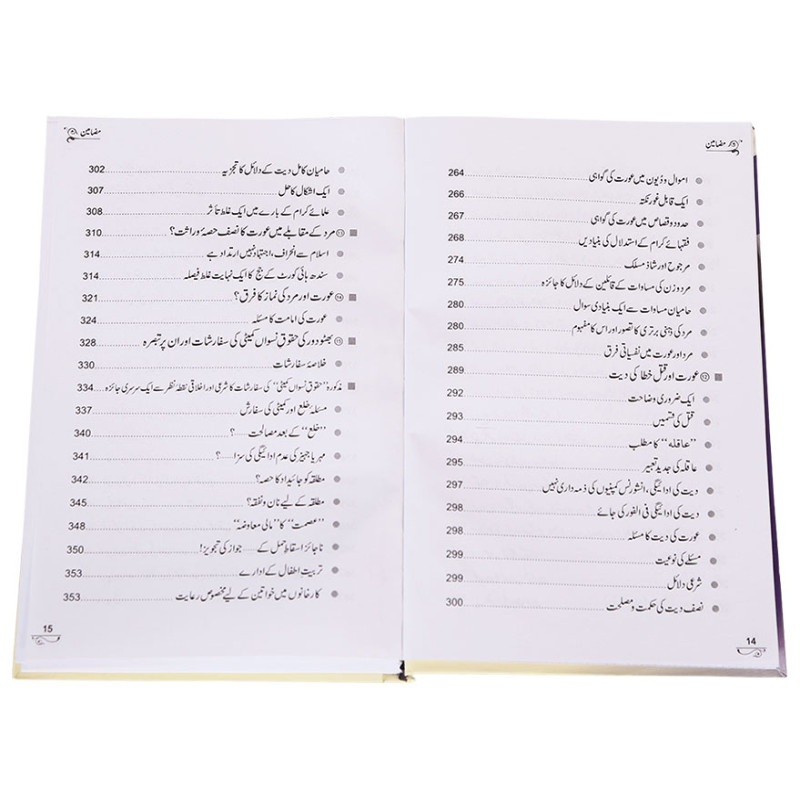 مضامین
اموال و دیون میں عورت کی گواہی 264
ایک قابل غور نکتہ 266
حدود و قصاص میں عورت کی گواہی 267
فقہائے کرام کے استدلال کی بنیادیں 268
مرجوح اور شاذ مسلک 274
مرد و زن کی مساوات کے قائلین کے دلائل کا جائزہ 275
حامیان مساوات سے ایک بنیادی سوال 280
مرد کی دینی برتری کا تصور اور اس کا مفہوم 280
مرد اور عورت میں نفسیاتی فرق 285
عورت اور قتل خطا کی دیت 289
ایک ضروری وضاحت 292
قتل کی قسمیں 293
’’عاقلہ‘‘ کا مطلب 294
عاقلہ کی جدید تعبیر 295
دیت کی ادائیگی، انشورنس کمپنیوں کی ذمہ داری نہیں 297
دیت کی ادائیگی فی الفور کی جائے 298
عورت کی دیت کا مسئلہ 298
مسئلے کی نوعیت 299
شرعی دلائل 299
نصف دیت کی حکمت و مصلحت 300
14
مضامین
حامیان کامل دیت کے دلائل کا تجزیہ 302
ایک اشکال کا حل 307
علمائے کرام کے بارے میں ایک غلط تأثر 308
مرد کے مقابلے میں عورت کا نصف حصۂ وراثت؟ 310
اسلام سے انحراف، اجتہاد نہیں ارتداد ہے 314
سندھ ہائی کورٹ کے جج کا ایک نہایت غلط فیصلہ 314
عورت اور مرد کی نماز کا فرق؟ 321
عورت کی امامت کا مسئلہ 324
بھٹو دور کی حقوق نسواں کمیٹی کی سفارشات اور ان پر تبصرہ 328
خلاصۂ سفارشات 330
مذکورہ ’’حقوق نسواں کمیٹی‘‘ کی سفارشات کا شرعی اور اخلاقی نقطۂ نظر سے ایک سرسری جائزہ 334
مسئلۂ خلع اور کمیٹی کی سفارش 337
’’خلع‘‘ کے بعد مصالحت ــــ؟ 340
مہر یا جہیز کی عدم ادائیگی کی سزا ــــ؟ 341
مطلقہ کو جائیداد کا حصہ؟ 342
مطلقہ کے لیے نان و نفقہ؟ 345
’’عصمت‘‘ کا ’’مالی معاوضہ‘‘ 348
ناجائز اسقاط حمل کے ــــ جواز کی تجویز! 350
تربیت اطفال کے ادارے 353
کارخانوں میں خواتین کے لیے مخصوص رعایت 353
15